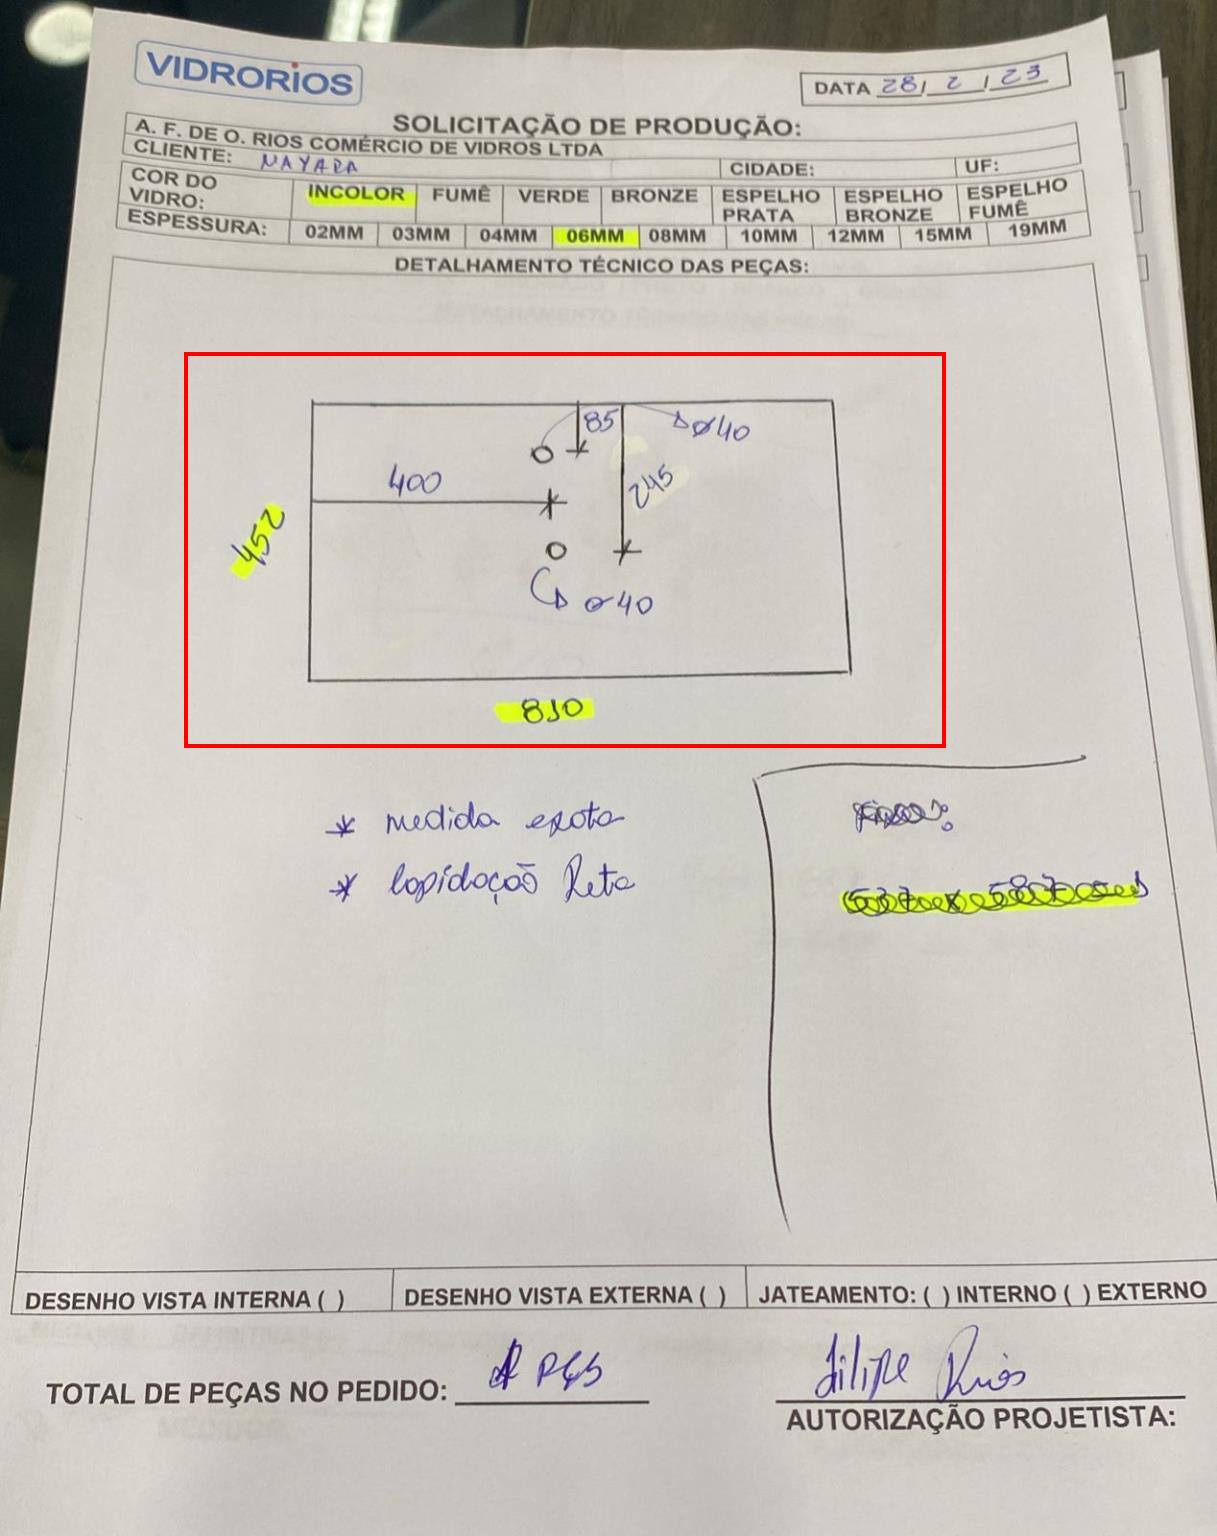 VIDRORIOS
DATA 28/ 2 / 23
SOLICITAÇÃO DE PRODUÇÃO:
A. F. DE O. RIOS COMÉRCIO DE VIDROS LTDA
CLIENTE: NAYARA CIDADE: UF:
COR DO VIDRO: INCOLOR FUMÊ VERDE BRONZE ESPELHO PRATA ESPELHO BRONZE ESPELHO FUMÊ
ESPESSURA: 02MM 03MM 04MM 06MM 08MM 10MM 12MM 15MM 19MM
DETALHAMENTO TÉCNICO DAS PEÇAS:
85
ø40
400
245
452
ø40
810
* medida exata
* lapidação Reta
DESENHO VISTA INTERNA ( ) DESENHO VISTA EXTERNA ( ) JATEAMENTO: ( ) INTERNO ( ) EXTERNO
TOTAL DE PEÇAS NO PEDIDO: PÇS
Filipe Rios
AUTORIZAÇÃO PROJETISTA: